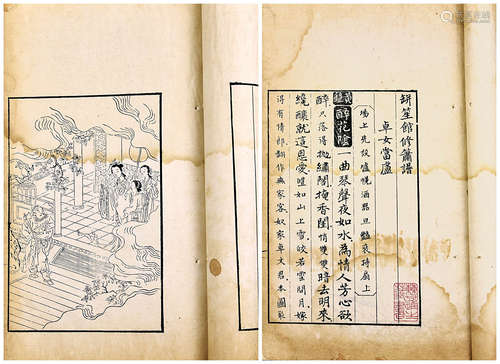 缾笙館修簫譜
卓女當壚
場上先設壚幌酒器旦豔妝持扇上
醉花陰 一曲琴聲夜如水為情人芳心欲
醉只落得拋繡閣掩香閨悄雙雙暗去明來
繞釀就這恩愛皚如山上雪皎若雲間月嫁
得有情郎翻作無家客奴家卓文君本圖